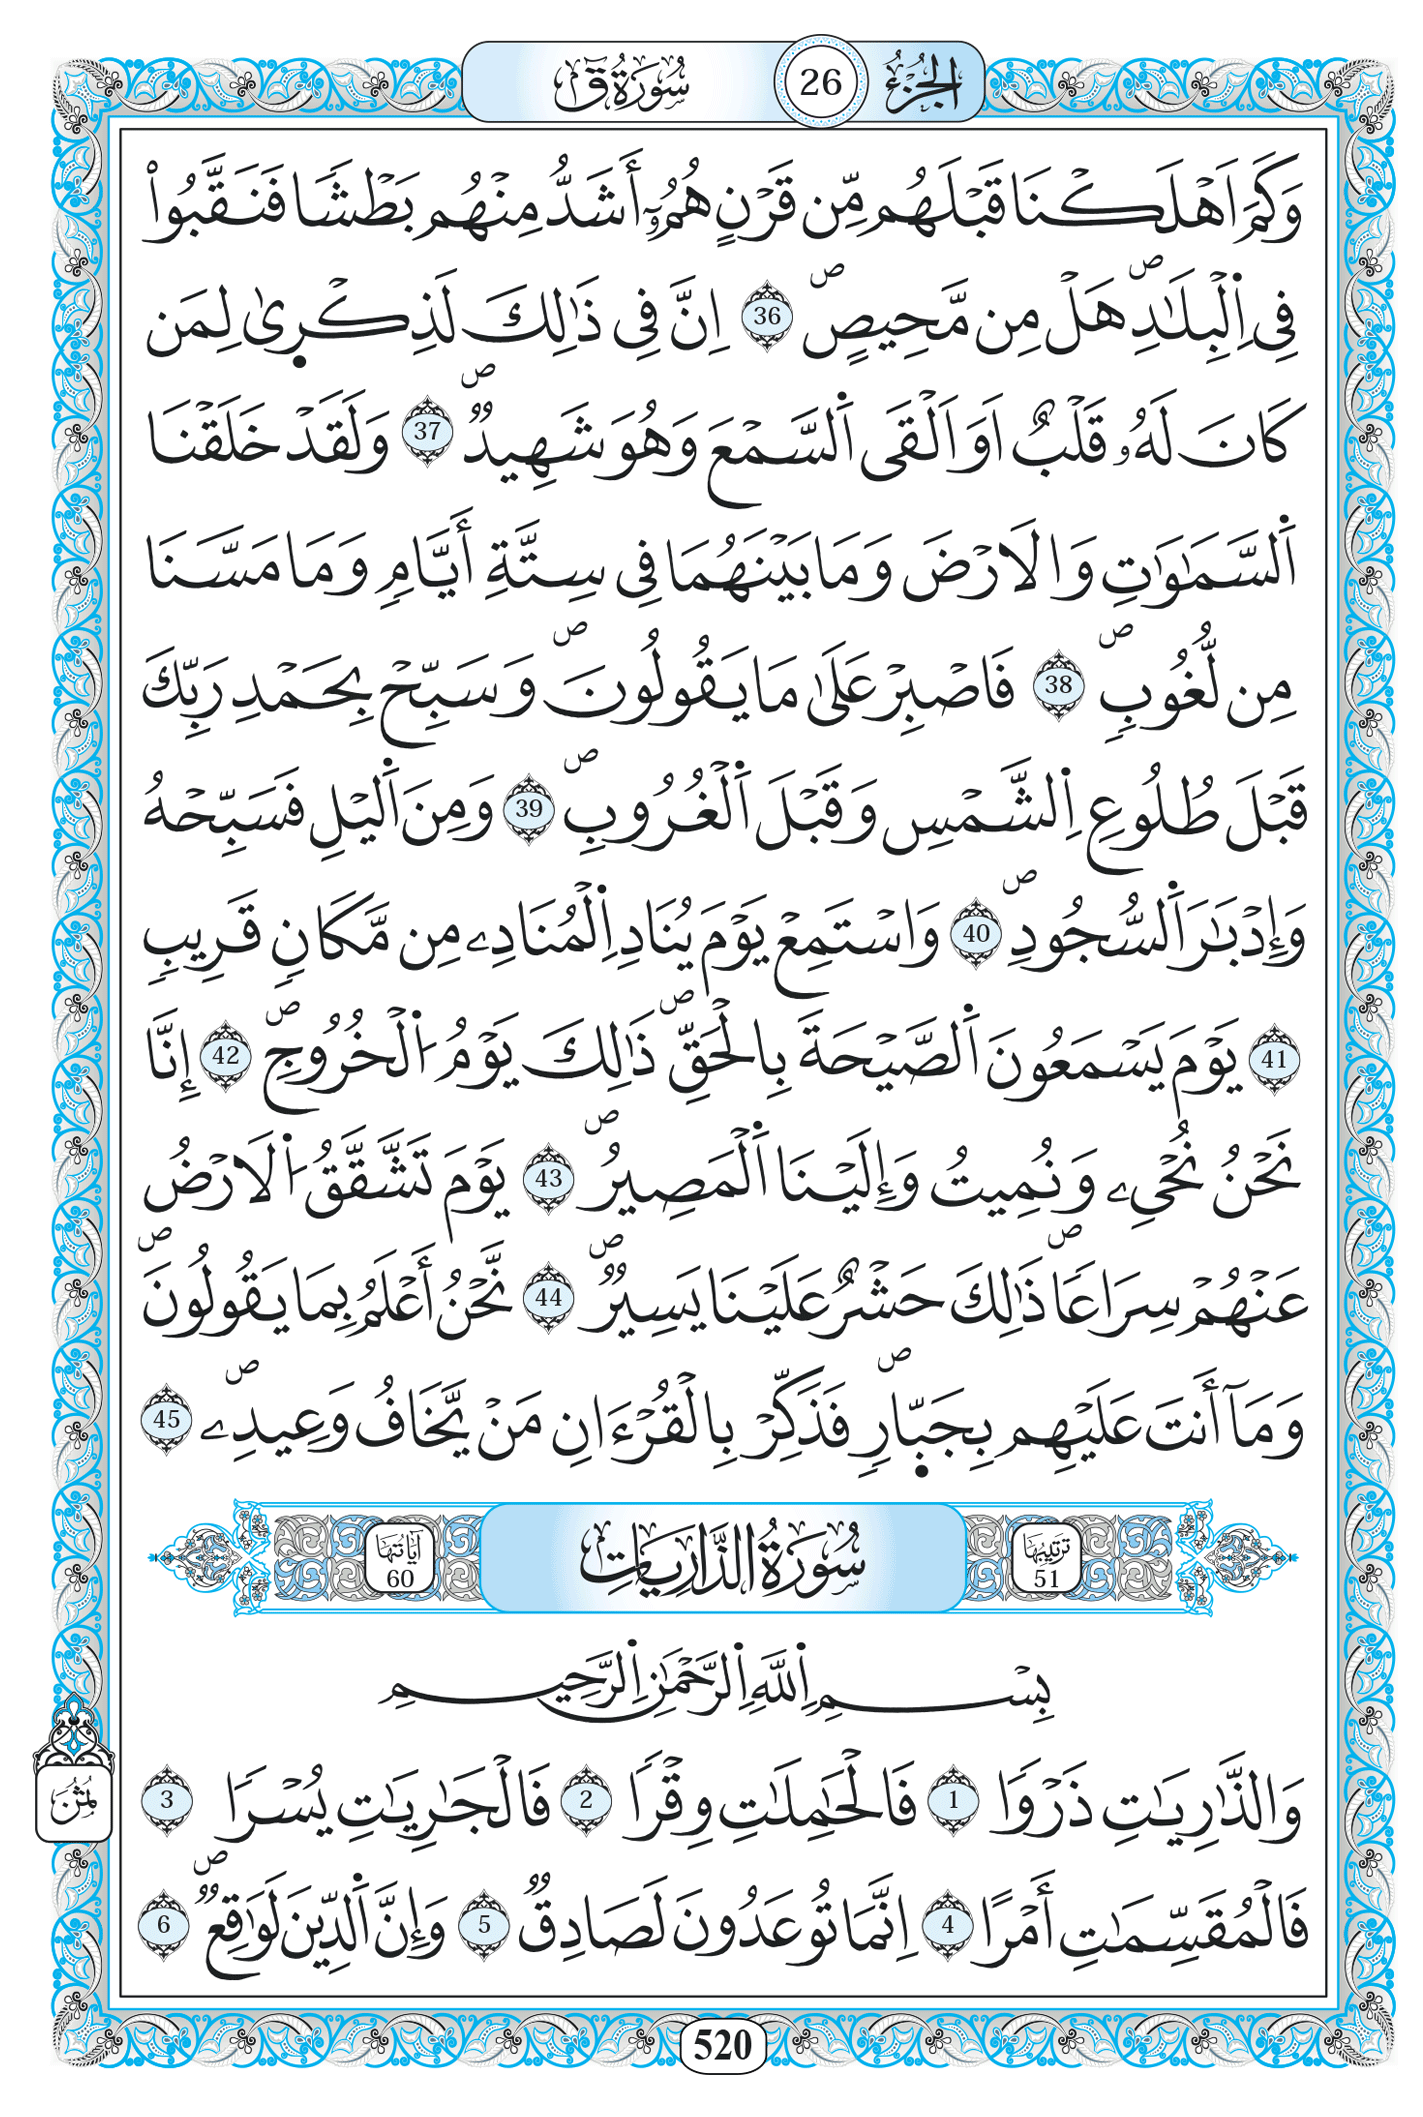 الجُزْءُ 26 سُورَةُ قٓ
وَكَمَ اَهْلَكْنَا قَبْلَهُم مِّن قَرْنٍ هُمُۥٓ أَشَدُّ مِنْهُم بَطْشًا فَنَقَّبُواْ
فِى اِ۬لْبِلَٰدِۖ هَلْ مِن مَّحِيصٍۖ 36 اِنَّ فِى ذَٰلِكَ لَذِكْر۪ىٰ لِمَن
كَانَ لَهُۥ قَلْبٌ اَوَ اَلْقَى اَ۬لسَّمْعَ وَهُوَ شَهِيدٌۖ 37 وَلَقَدْ خَلَقْنَا
اَ۬لسَّمَٰوَٰتِ وَالَارْضَ وَمَا بَيْنَهُمَا فِى سِتَّةِ أَيَّامٍ وَمَا مَسَّنَا
مِن لُّغُوبٍۖ 38 فَاصْبِرْ عَلَىٰ مَا يَقُولُونَۖ وَسَبِّحْ بِحَمْدِ رَبِّكَ
قَبْلَ طُلُوعِ اِ۬لشَّمْسِ وَقَبْلَ اَ۬لْغُرُوبِۖ 39 وَمِنَ اَ۬ليْلِ فَسَبِّحْهُ
وَإِدْبَٰرَ اَ۬لسُّجُودِۖ 40 وَاسْتَمِعْ يَوْمَ يُنَادِ اِ۬لْمُنَادِۦ مِن مَّكَانٍ قَرِيبٍ
41 يَوْمَ يَسْمَعُونَ اَ۬لصَّيْحَةَ بِالْحَقِّۖ ذَٰلِكَ يَوْمُ اُ۬لْخُرُوجِۖ 42 إِنَّا
نَحْنُ نُحْىِۦ وَنُمِيتُ وَإِلَيْنَا اَ۬لْمَصِيرُۖ 43 يَوْمَ تَشَّقَّقُ اُ۬لَارْضُ
عَنْهُمْ سِرَاعًاۖ ذَٰلِكَ حَشْرٌ عَلَيْنَا يَسِيرٌۖ 44 نَّحْنُ أَعْلَمُ بِمَا يَقُولُونَۖ
وَمَآ أَنتَ عَلَيْهِم بِجَبّ۪ارٍۖ فَذَكِّرْ بِالْقُرْءَانِ مَنْ يَّخَافُ وَعِيدِۦۖ 45
تَرْتِيبُهَا 51 سُورَةُ الذَّارِيَاتِ آيَاتُهَا 60
بِسْمِ اِ۬للَّهِ اِ۬لرَّحْمَٰنِ اِ۬لرَّحِيمِ
وَالذَّٰرِيَٰتِ ذَرْوًا 1 فَالْحَٰمِلَٰتِ وِقْرًا 2 فَالْجَٰرِيَٰتِ يُسْرًا 3
ثُمُن
فَالْمُقَسِّمَٰتِ أَمْرًا 4 اِنَّمَا تُوعَدُونَ لَصَادِقٌ 5 وَإِنَّ اَ۬لدِّينَ لَوَٰقِعٌۖ 6
520